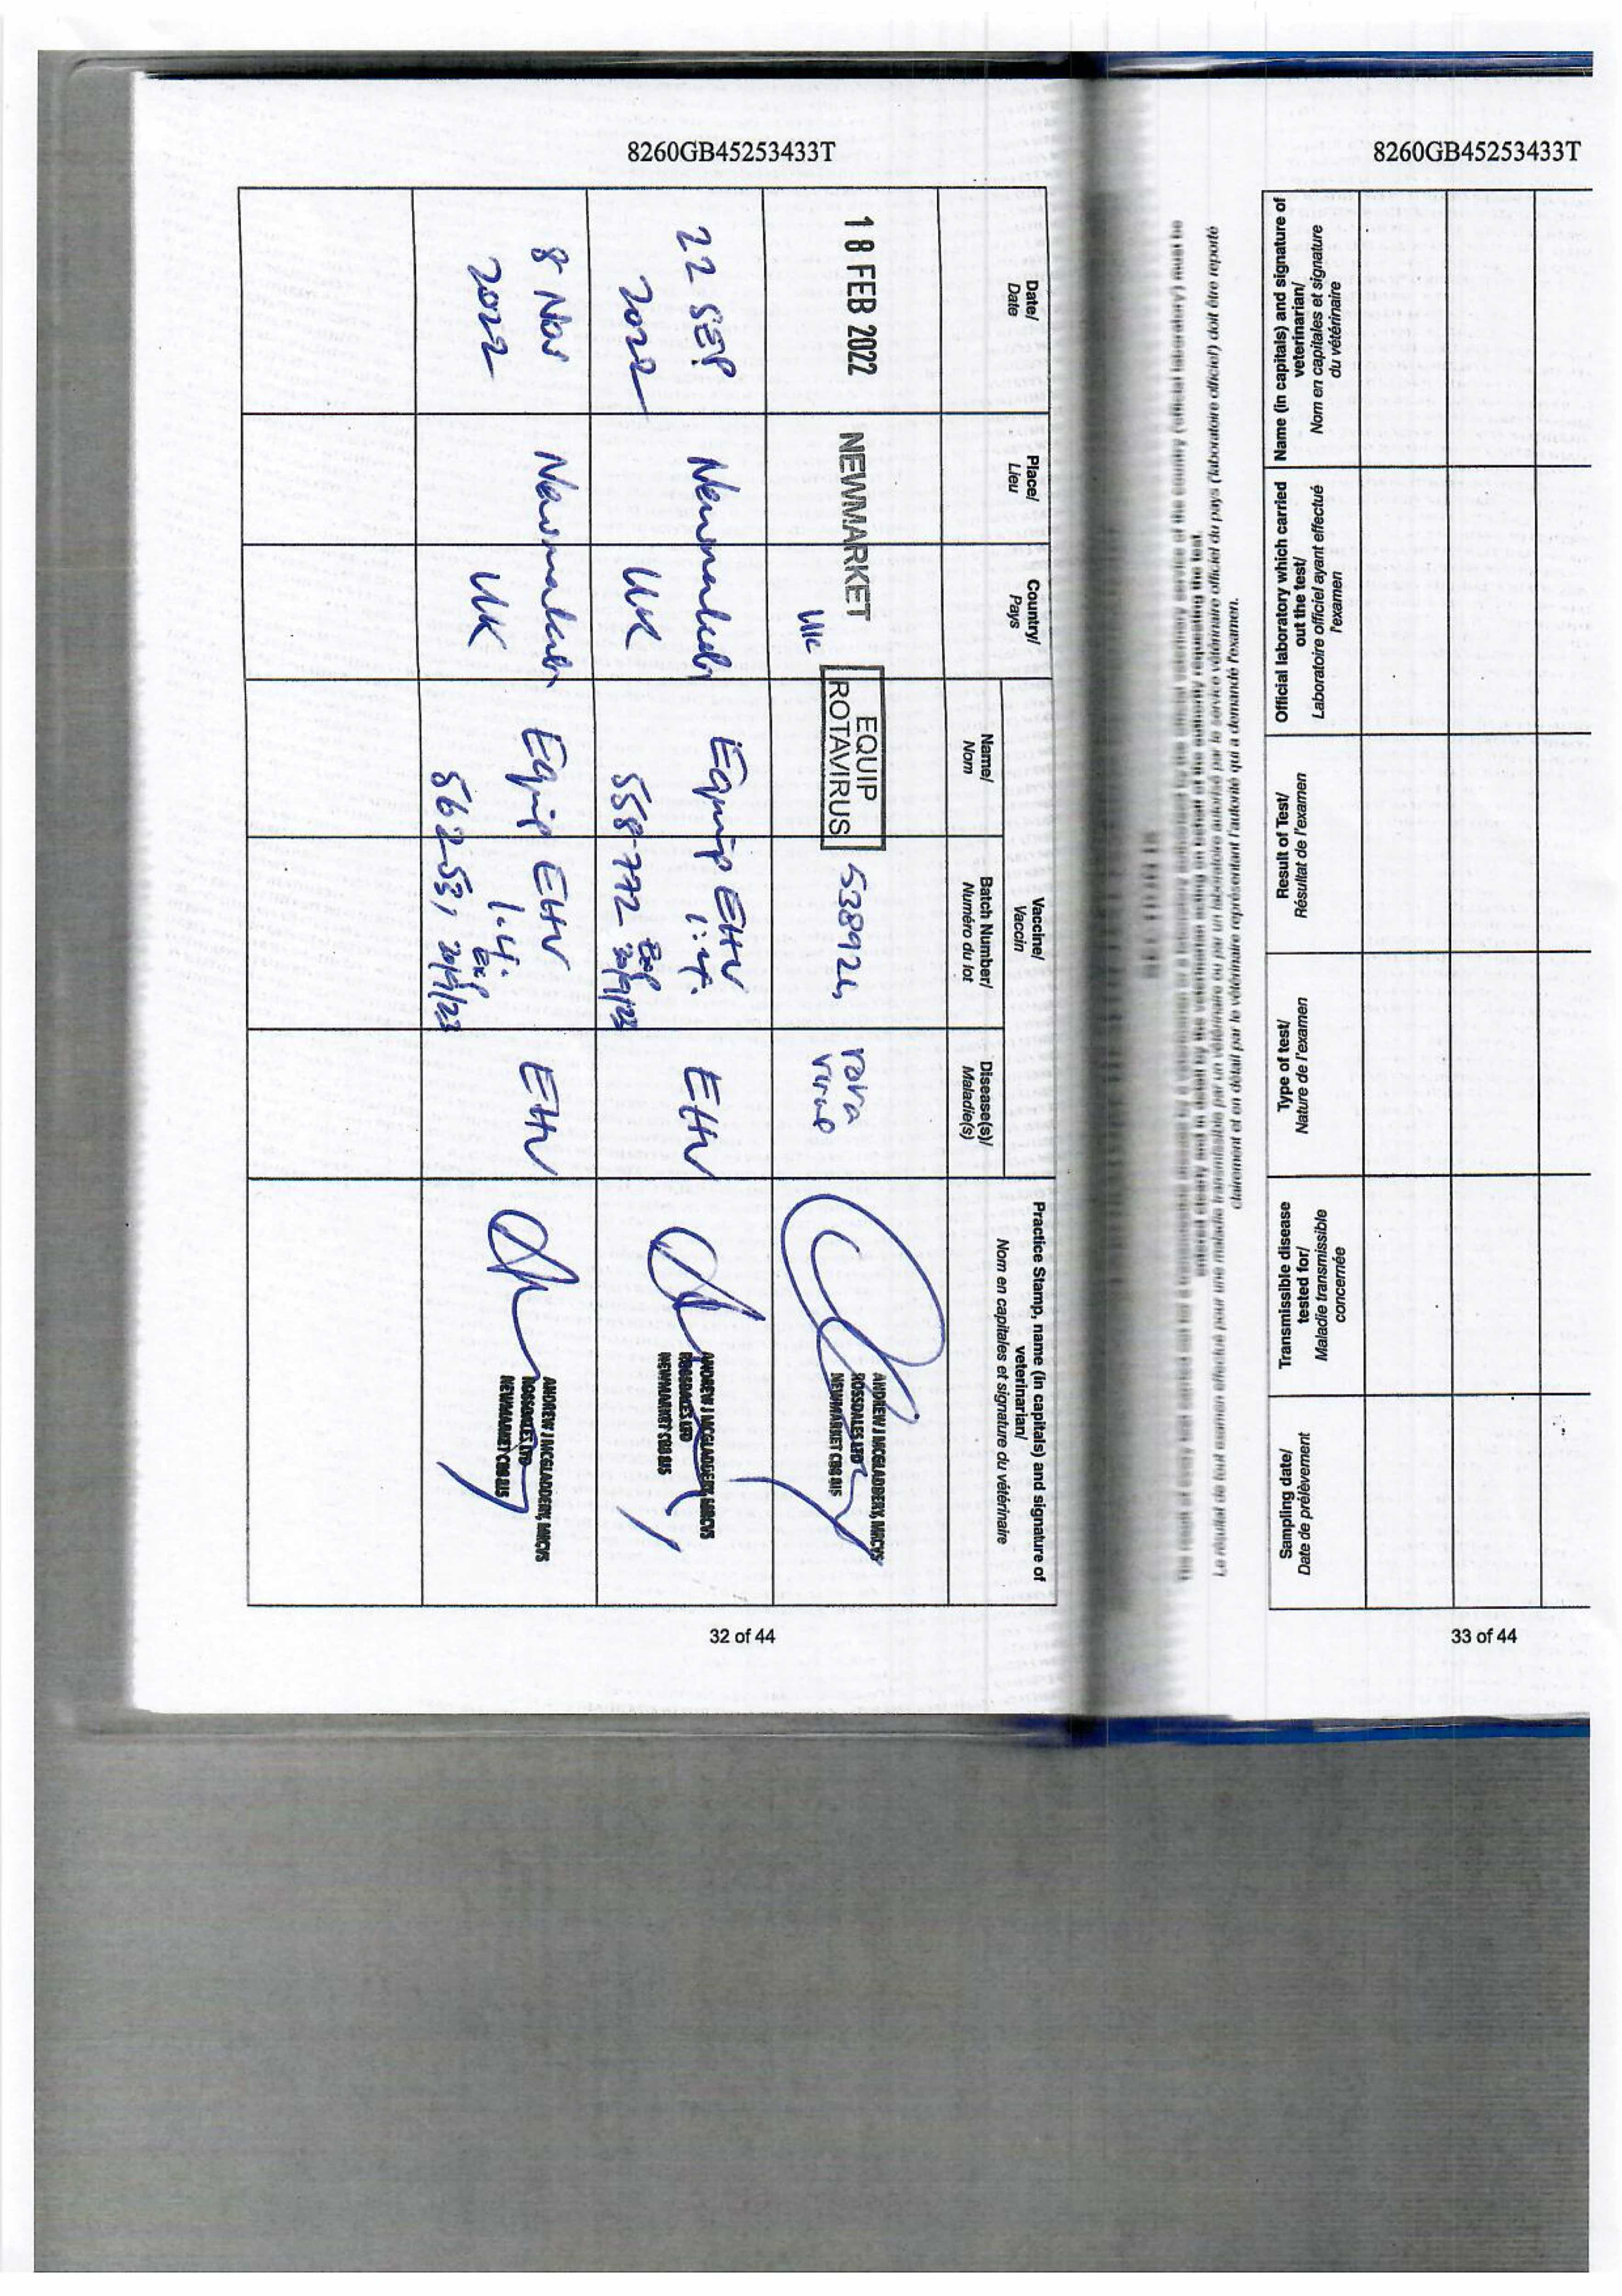 8260GB45253433T
Date/
Date
Place/
Lieu
Country/
Pays
Vaccine/
Vaccin
Name/
Nom
Batch Number/
Numéro du lot
Disease(s)/
Maladie(s)
Practice Stamp, name (in capitals) and signature of
veterinarian/
Nom en capitales et signature du vétérinaire
18 FEB 2022 NEWMARKET
UK
EQUIP
ROTAVIRUS
538924
rota
virus
ANDREW J MCGLADDERY, MRCVS
ROSSDALES LTD
NEWMARKET CB8 8JS
22 SEP
2022
Newmarket
UK
Equip EHV
1:4.
558772 Exp
EHV
ANDREW J MCGLADDERY, MRCVS
ROSSDALES LTD
NEWMARKET CB8 8JS
8 Nov
2022
Newmarket
UK
Equip EHV
1.4.
Exp
EHV
ANDREW J MCGLADDERY, MRCVS
ROSSDALES LTD
NEWMARKET CB8 8JS
32 of 44
8260GB45253433T
Le résultat de tout examen effectué pour une maladie transmissible par un vétérinaire ou par un laboratoire autorisé par le service vétérinaire officiel du pays (laboratoire officiel) doit être reporté
clairement et en détail par le vétérinaire représentant l'autorité qui a demandé l'examen.
Sampling date/
Date de prélèvement
Transmissible disease
tested for/
Maladie transmissible
concernée
Type of test/
Nature de l'examen
Result of Test/
Résultat de l'examen
Official laboratory which carried
out the test/
Laboratoire officiel ayant effectué
l'examen
Name (in capitals) and signature of
veterinarian/
Nom en capitales et signature
du vétérinaire
33 of 44